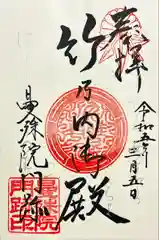 奉拝
令和五年三月五日
竹乃内御殿
曼殊院門跡